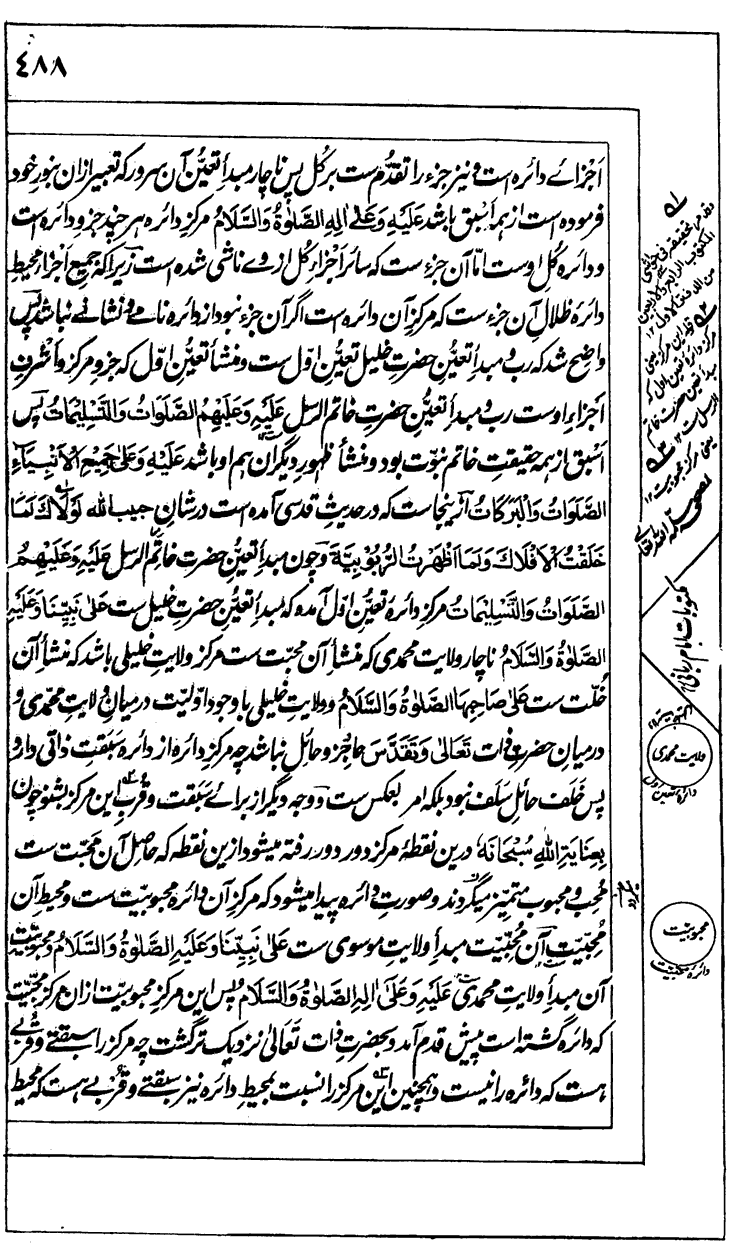 ٤٨٨
اَجزائے دائره است و نیز جزء را تقدّم ست بر کُل پس ناچار مبدأ تعیّنِ آن سرور که تعبیر ازان بنورِ خود
فرموده است از همه اَسبق باشد عَلَيْهِ وَعَلٰى اٰلِهِ الصَّلٰوةُ وَالسَّلَامُ مرکزِ دائره هر چند جزوِ دائره است
و دائره کُلِ اوست امّا آن جزء ست که سائر اَجزاءِ کُل از وے ناشی شده است زیرا که جمیع اَجزاءِ محیطِ
دائرهٔ ظلالِ آن جزء ست که مرکزِ آن دائره است اگر آن جزء نبود از دائره نامے و نشانے نباشد پس
واضح شد که رب و مبدأ تعیّنِ حضرتِ خلیل تعیّنِ اوّل ست و منشأ تعیّنِ اوّل که جزو مرکز و اَشرفِ
اَجزاءِ اوست رب و مبدأ تعیّنِ حضرتِ خاتم الرسل عَلَيْهِ وَعَلَيْهِمُ الصَّلَوَاتُ وَالتَّسْلِيْمَاتُ پس
اَسبق از همه حقیقتِ خاتم نبوّت بود و منشأ ظهورِ دیگران هم او باشد عَلَيْهِ وَعَلٰى جَمِيْعِ الْاَنْبِيَآءِ
الصَّلَوَاتُ وَالْبَرَكَاتُ ازینجاست که در حدیثِ قدسی آمده است در شانِ حبیب الله لَوْلَاكَ لَمَا
خَلَقْتُ الْاَفْلَاكَ وَلَمَا اَظْهَرْتُ الرُّبُوْبِيَّةَ و چون مبدأ تعیّنِ حضرت خاتم الرسل عَلَيْهِ وَعَلَيْهِمُ
الصَّلَوَاتُ وَالتَّسْلِيْمَاتُ مرکزِ دائرهٔ تعیّنِ اوّل آمده که مبدأ تعیّنِ حضرتِ خلیل ست عَلٰى نَبِيِّنَا وَعَلَيْهِ
الصَّلٰوةُ وَالسَّلَامُ ناچار ولایتِ محمدی که منشأ آن محبّت ست مرکزِ ولایتِ خلیلی باشد که منشأ آن
خُلّت ست عَلٰى صَاحِبِهَا الصَّلٰوةُ وَالسَّلَامُ و ولایتِ خلیلی با وجود اوّلیّت درمیانِ ولایتِ محمّدی و
درمیانِ حضرتِ ذات تَعَالٰى وَتَقَدَّسَ حاجز و حائل نباشد چه مرکزِ دائره از دائره سَبقتِ ذاتی دارد
پس خَلَف حائلِ سَلَف نبود بلکه امر بعکس ست و وجه دیگر از برائے سَبقت و قربِ این مرکز بشنو چون
بِعِنَايَةِ اللهِ سُبْحَانَهٗ درین نقطهٔ مرکز دور دور رفته میشود ازین نقطه که حاصلِ آن محبّت ست
مُحِب و محبوب متمیّز میگردند و صورتِ دائره پیدا میشود که مرکزِ آن دائره محبوبیّت ست و محیطِ آن
مُحِبِّیّت آن مُحِبِّیّت مبدأ ولایتِ موسوی ست عَلٰى نَبِيِّنَا وَعَلَيْهِ الصَّلٰوةُ وَالسَّلَامُ و محبوبیّت
آن مبدأ ولایتِ محمّدی عَلَيْهِ وَعَلٰى اٰلِهِ الصَّلٰوةُ وَالسَّلَامُ پس این مرکزِ محبوبیّت ازان مرکزِ محبّیّت
که دائره گشته است پیش قدم آمد و بحضرتِ ذات تَعَالٰى نزدیک تر گشت چه مرکز را سبقتے و قربے
هست که دائره را نیست و همچنین این مرکز را نسبت بمحیطِ دائره نیز سبقتے و قربے هست که محیط
من الدفتر الاول ۱۲
مکتوبات امام ربانی
ولایت محمدی
دائره تعین اول
محبوبیت
دائره محبیت